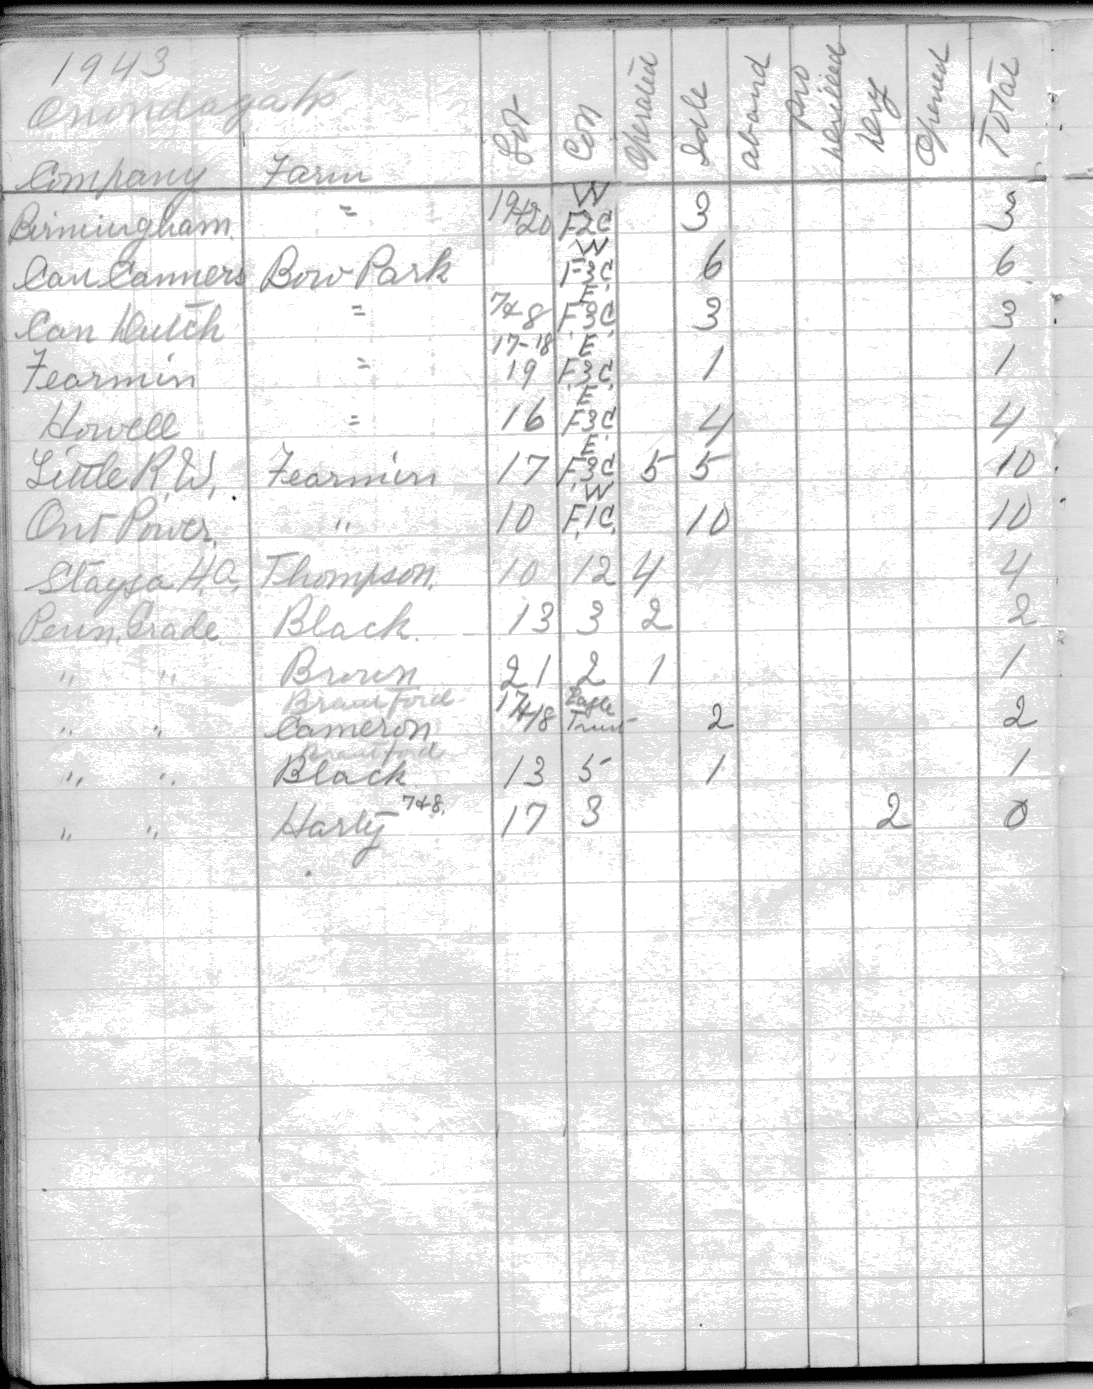 1943
Onondaga Tp
Company Farm Lot Con Operated Idle aband Pro Drilled Dry Opened Total
Birmingham. = 19+20 W F.2C 3 3
Can Canners Bow Park W F3C 6 6
Can Dutch = 7+8 E F.3C. 3 3
Fearmin = 17-18 19 E F.3C. 1 1
Howell = 16 E F3C 4 4
Little R.W. Fearmin 17 E F.3C 5 5 10
Ont Power. " 10 W F.1C. 10 10
H.A. Thompson. 10 12 4 4
Penn. Grade Black. 13 3 2 2
" " Brown 21 2 1 1
" " Brantford Cameron 17+18 Eagle 2 2
" " Brantford Black 13 5 1 1
" " 7+8. 17 3 2 0